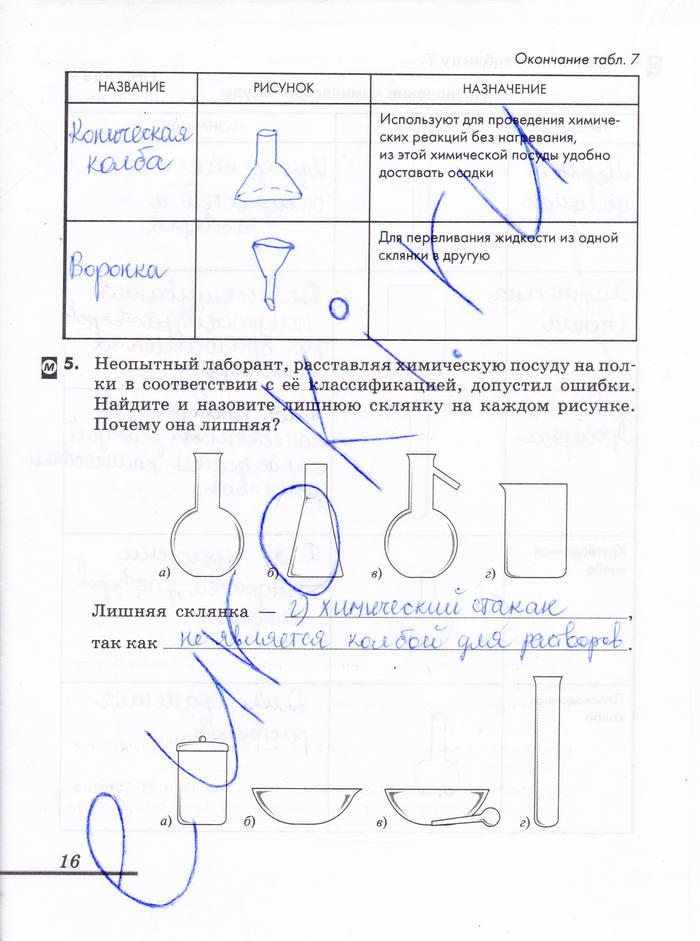 Окончание табл. 7
НАЗВАНИЕ РИСУНОК НАЗНАЧЕНИЕ
Коническая
колба
Используют для проведения химиче-
ских реакций без нагревания,
из этой химической посуды удобно
доставать осадки
Воронка
Для переливания жидкости из одной
склянки в другую
М 5. Неопытный лаборант, расставляя химическую посуду на пол-
ки в соответствии с её классификацией, допустил ошибки.
Найдите и назовите лишнюю склянку на каждом рисунке.
Почему она лишняя?
а) б) в) г)
Лишняя склянка — г) химический стакан,
так как не является колбой для растворов.
а) б) в) г)
16